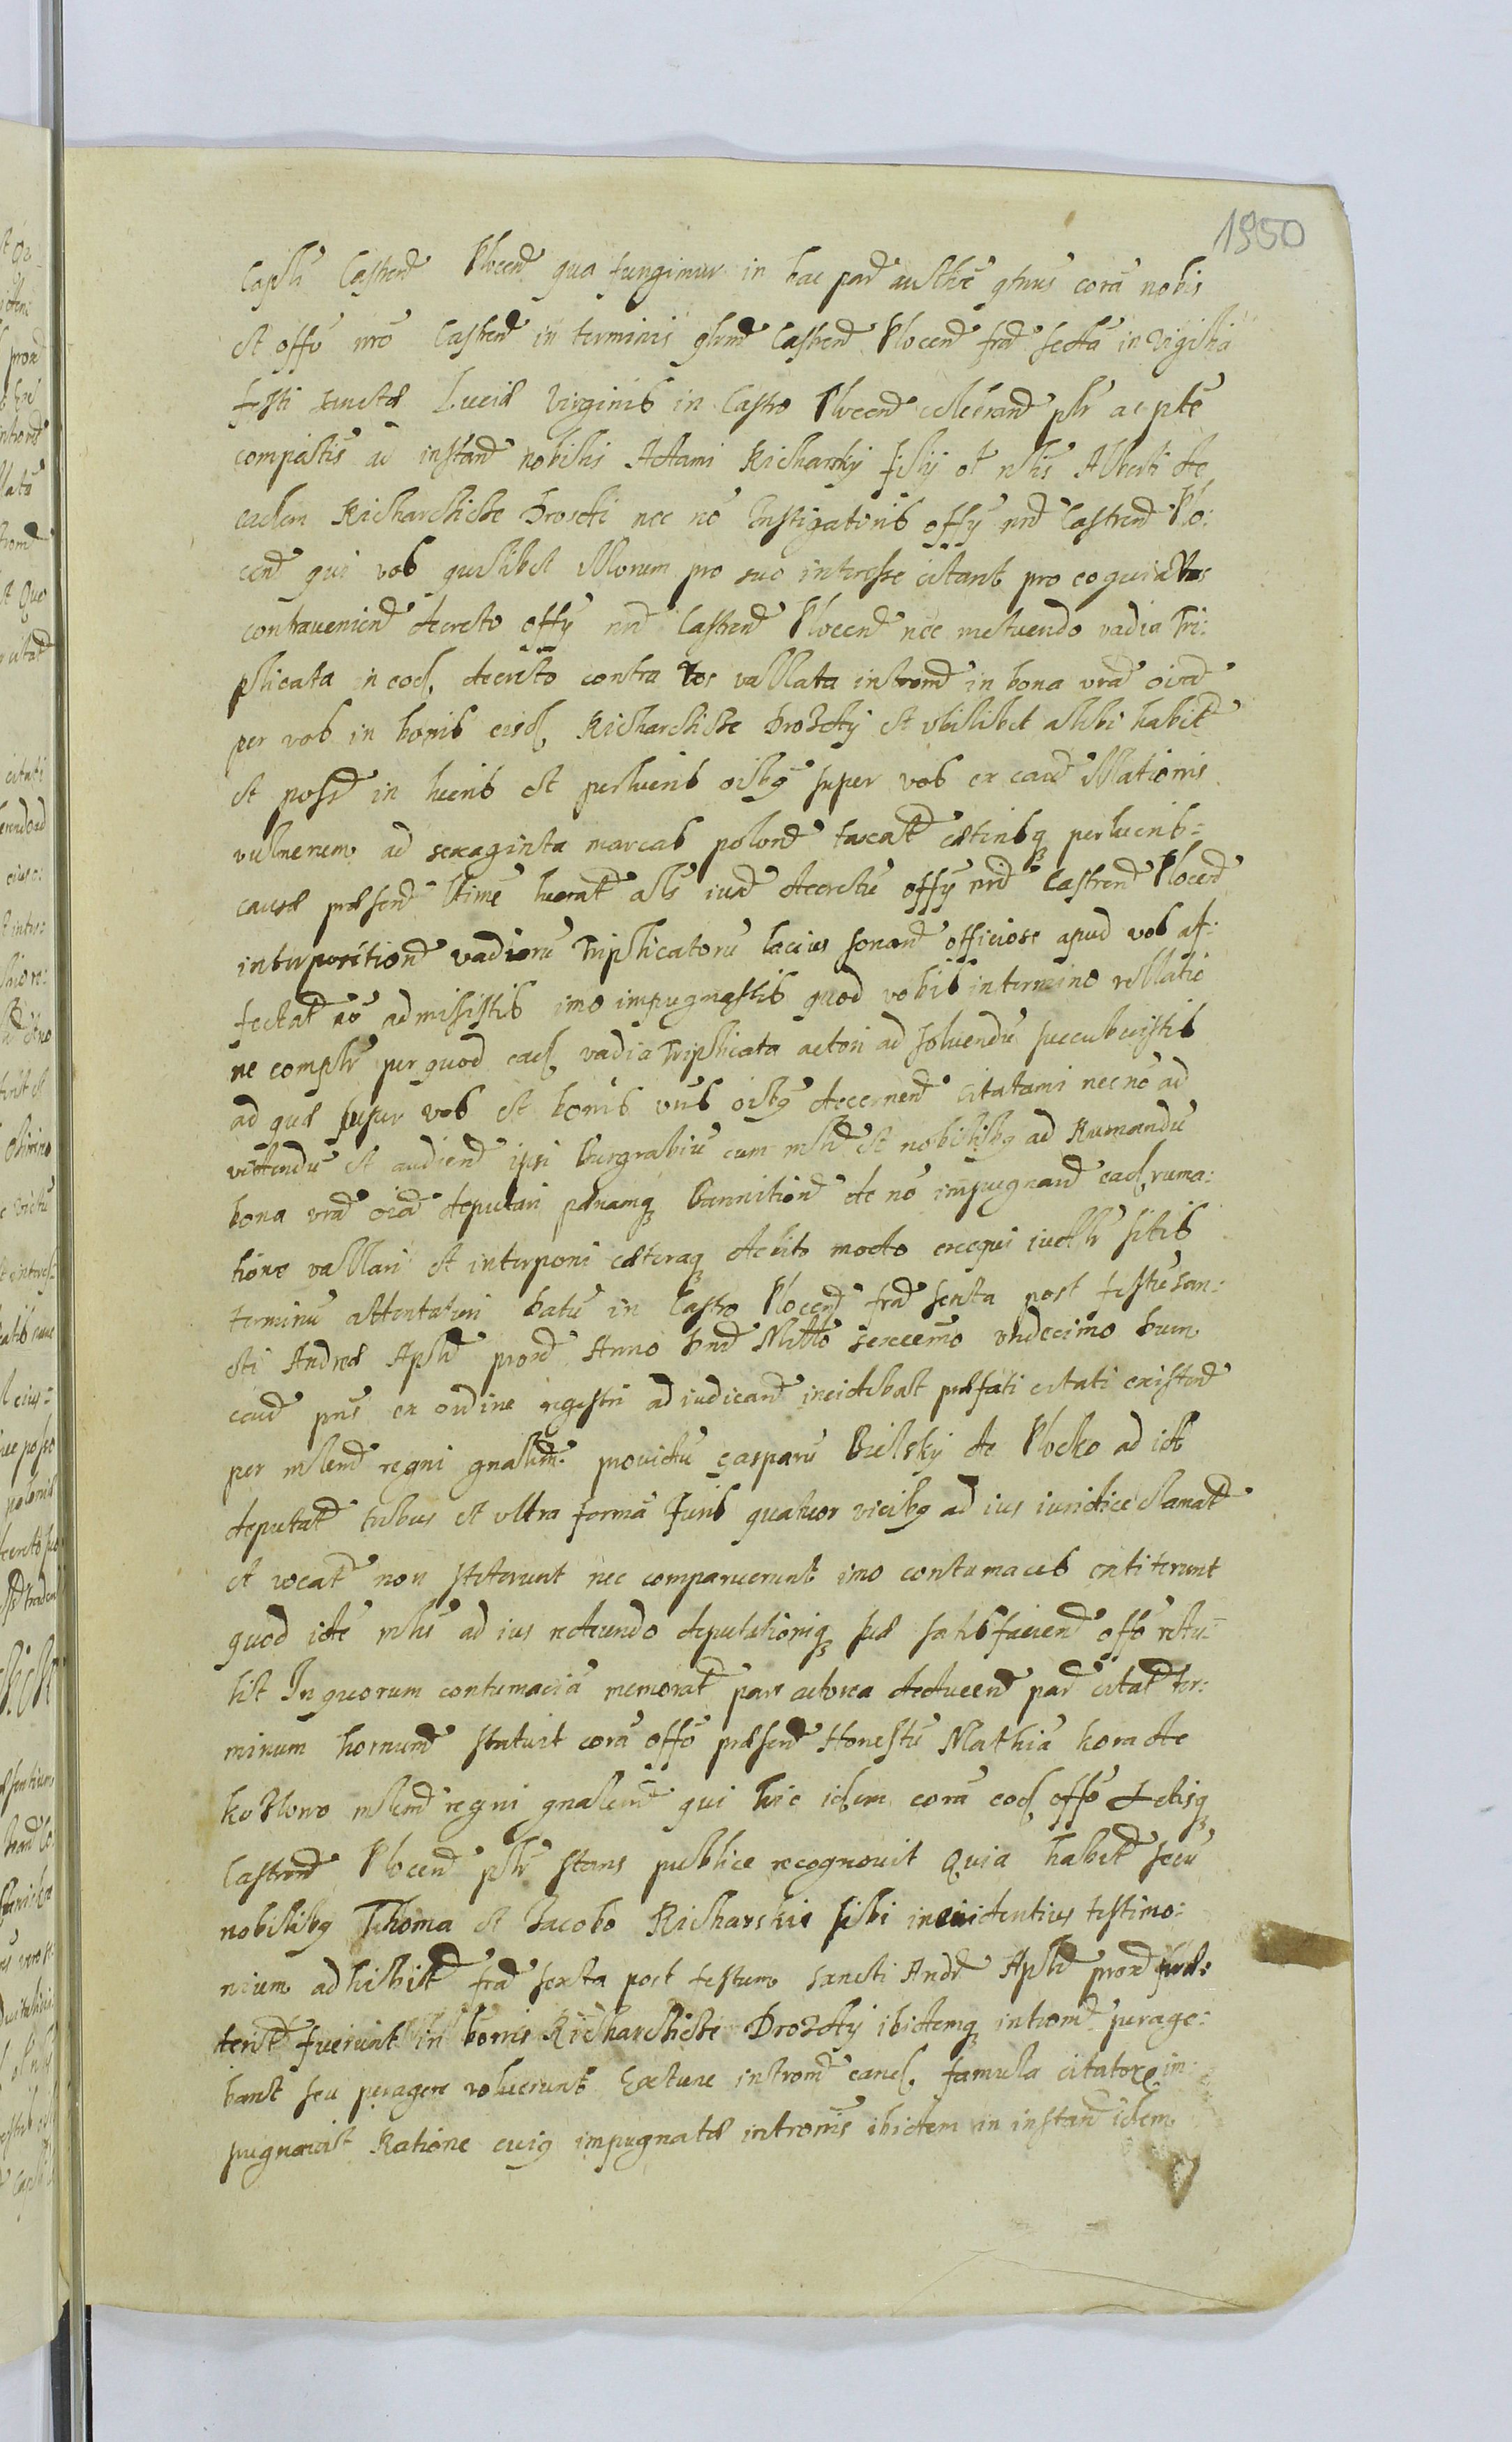 1950
Caplu Castren Plocen qua fungimur in hac par autthe qtnus cora nobis
et offo nro Castren in terminis qlrm Castren Plocen fra secta in vigilia
festi sanctæ Luciæ Virginis in Castro Plocen celebran plr ac ptē
compēatis ad instan nobilis Adami Richarsky filij ol nlis Alberti de
eadem Richarcicze Drosdi nec nō Instigatoris offÿ nri Castren Plo:
cen qui vos quilibet illorum pro suo interesse citant pro eo quia Vos
contravenien decreto offÿ nri Castren Plocen nec metuendo vadia Tri:
plicata in eod, decreto contra vos vallata introm in bona vra oia
per vos in bonis eisd, Richarcicze Drozdÿ et vbilibet alibi habit
et possi in lucris et perlucris oibq super vos ex cau illationis
vulnerum ad sexaginta marcas polon taxat cætrisq perlucris
causæ præsen ltime lucrat als iux decretū offÿ nri Castren Plocen
interposition vadiorū Triplicatorū lacius sonan officiose apud vos af:
fectat nō admisistis imo impugnastis quod vobis in termino rllatio
ne complr per quod ead, vadia Triplicata actori ad soluendū succubuistis
ad quæ super vos et bonis vris oibq decernen citatami nec nō ad
videndū et audien ipsi Burgrabiū cum mlri et nobilibq ad Rumandū
bona vra oia deputari pænamq Bannition de nō impugnan ead, ruma:
tione vallari et interponi cæteraq debito modo exequi iudlr sitis
terminū attentaturi Datū in Castro Plocen fra sexta post festū san:
cti Andreæ Apli prox Anno Dni Millō sexcemo vndecimo Dum
cau pns ex ordine regestri ad iudican incidebat præfati citati existen
per mlem regni gnalem prouidū Gasparū Bielsky de Plocko ad id
deputat tribus et vltra formā Juris quatuor vicibq ad ius iuridice clamat
et vocat non steterunt nec comparuerunt imo contumaces extiterunt
quod idē mlris ad ius redeundo deputationiq suæ satisfacien offo retu-
lit In quorum contumacia memorat pars actorea deducen par citat ter:
minum hornum statuit corā offo præsen Honestū Mathiā kora de
kozlowo mlem regni gnalem qui hic idem corā eod, offo Actisq
Castren Plocen plr stans publice recognouit Quia habit secū
nobilibq Thoma et Jacobo Richarskie sibi in euidentius testimo:
nium adhibit fra sexta post festum sancti Andr Apli prox præ:
terit fuerunt in bonis Richarcicze Drozdÿ ibidemq introm perage:
bant seu peragere voluerunt Quæ introm eand, famula citatorū im
pugnauit Ratione cuiq impugnatæ intromis ibidem in instan idem